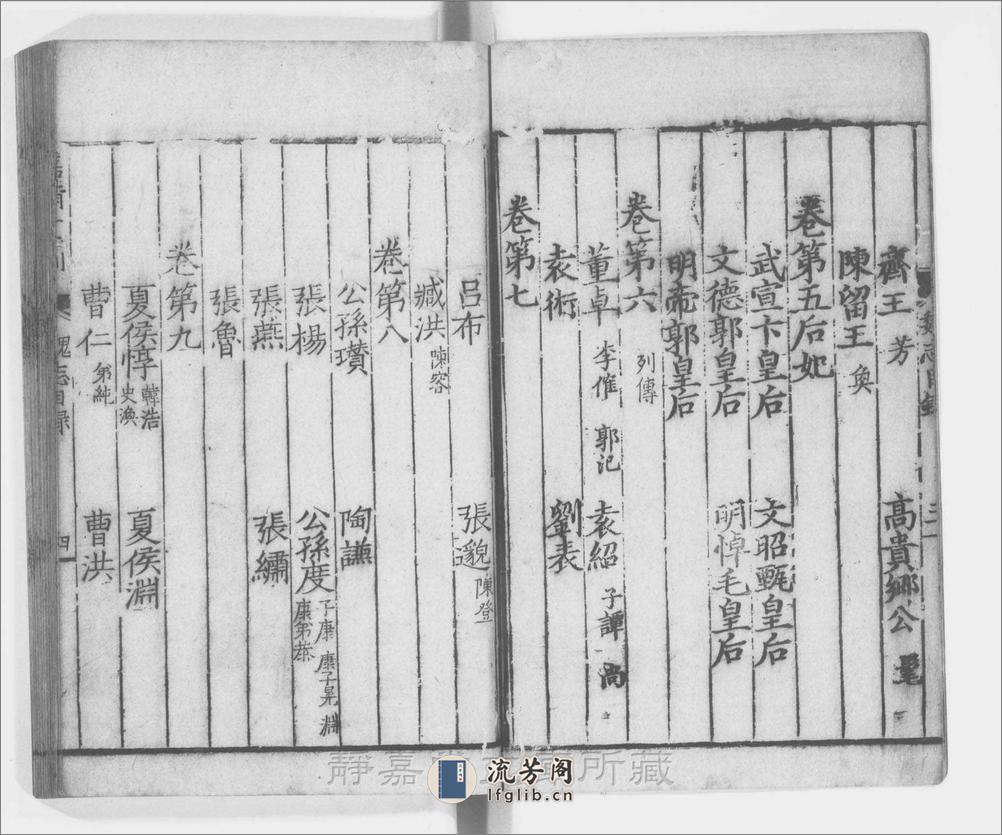 齊王 芳 高貴鄉公 髦
陳留王 奐
卷第五后妃
武宣卞皇后 文昭甄皇后
文德郭皇后 明悼毛皇后
明帝郭皇后
卷第六 列傳
董卓 李傕 郭汜 袁紹 子譚 尚
袁術 劉表
卷第七
呂布 張邈 陳登
臧洪 陳容
卷第八
公孫瓚 陶謙
張楊 公孫度 子康 康子晃 淵 康弟恭
張燕 張繡
張魯
卷第九
夏侯惇 韓浩 史渙 夏侯淵
曹仁 弟純 曹洪
魏志目録 四
靜嘉堂文庫所藏
流芳阁
lfglib.cn